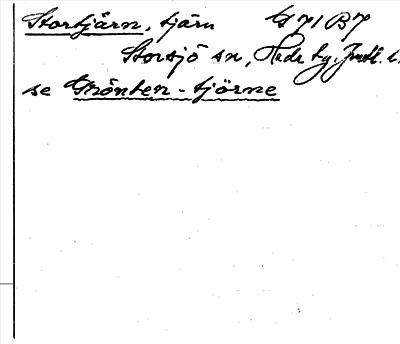 Stortjärn, tjärn G 71 B 7
Storsjö sn, Hede tg, Jmtl. l.
se Grönten-tjörne